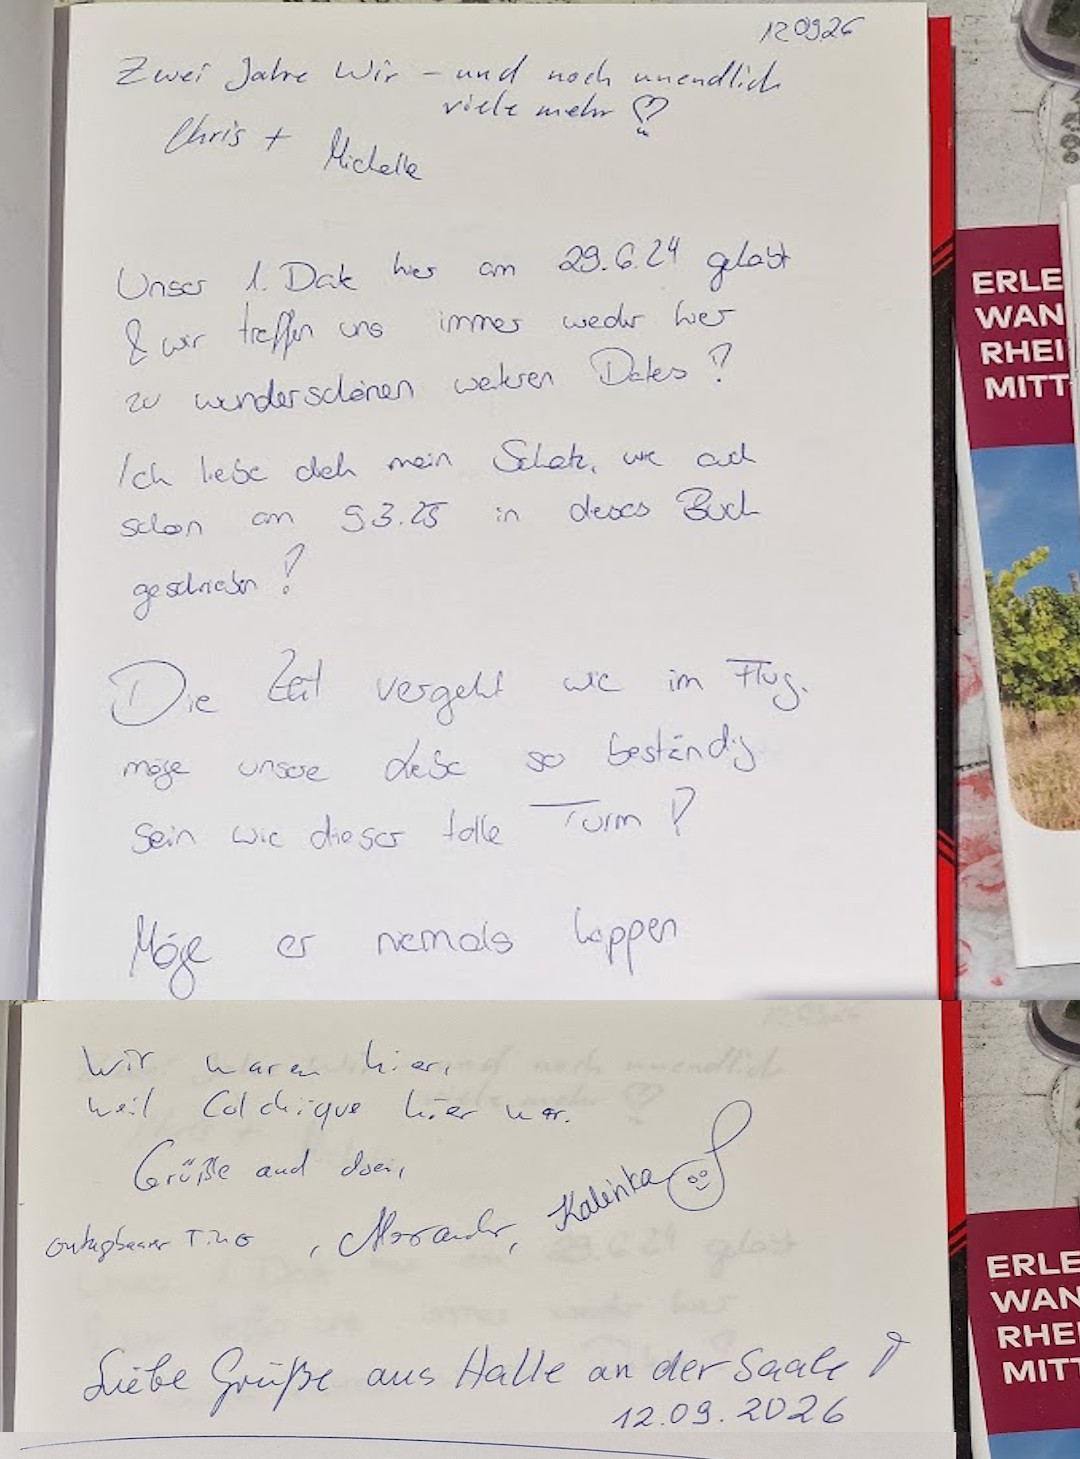 120926
Zwei Jahre Wir – und noch unendlich
viele mehr ♡
Chris + Michelle
Unser 1. Date hier am 29.6.24 gehabt
& wir treffen uns immer wieder hier
zu wunderschönen weiteren Dates!
Ich liebe dich mein Schatz, wie auch
schon am 9.3.25 in dieses Buch
geschrieben!
Die Zeit vergeht wie im Flug.
möge unsere Liebe so beständig
sein wie dieser tolle Turm!
Möge er niemals kippen
ERLE
WAN
RHEI
MITT
Wir waren hier,
weil Colchique hier war.
Grüße
Tino, Alexander, Kalinka
Liebe Grüße aus Halle an der Saale!
12.09.2026
ERLE
WAN
RHEI
MITT